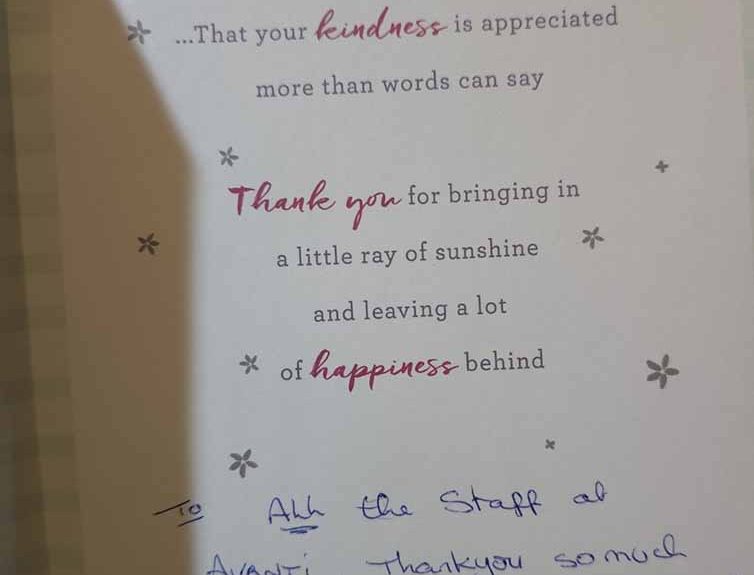 ...That your kindness is appreciated
more than words can say
Thank you for bringing in
a little ray of sunshine
and leaving a lot
of happiness behind
To All the Staff at
AVANTI Thankyou so much